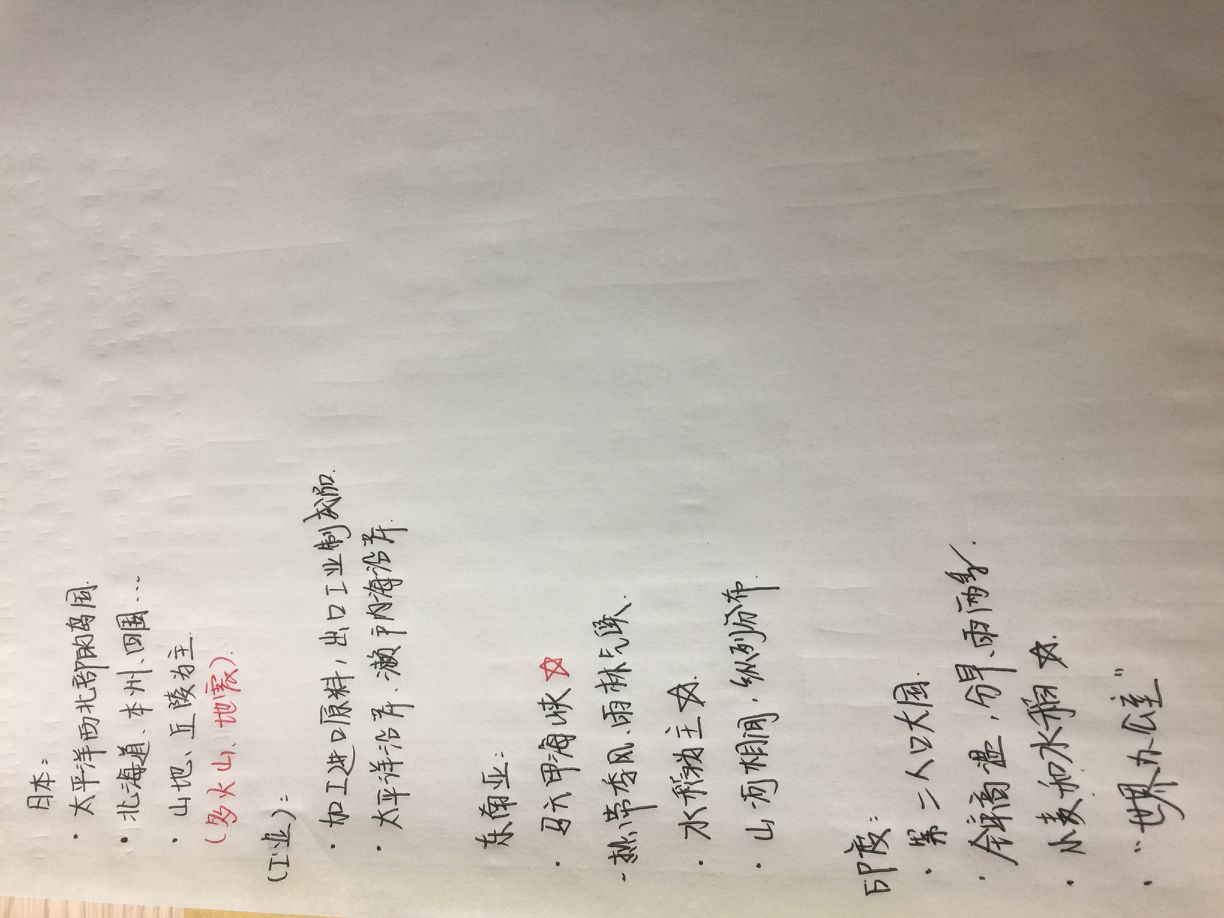 日本：
· 太平洋西北部的岛国.
· 北海道、本州、四国…
· 山地、丘陵为主.
(多火山、地震).
(工业)：
· 加工进口原料，出口工业制成品.
· 太平洋沿岸、濑户内海沿岸.
东南亚：
· 马六甲海峡☆
· 热带季风、雨林气候.
· 水稻为主☆.
· 山河相间，纵列分布.
印度：
· 第二人口大国.
· 全年高温，分旱、雨两季.
· 小麦和水稻☆.
· “世界办公室”